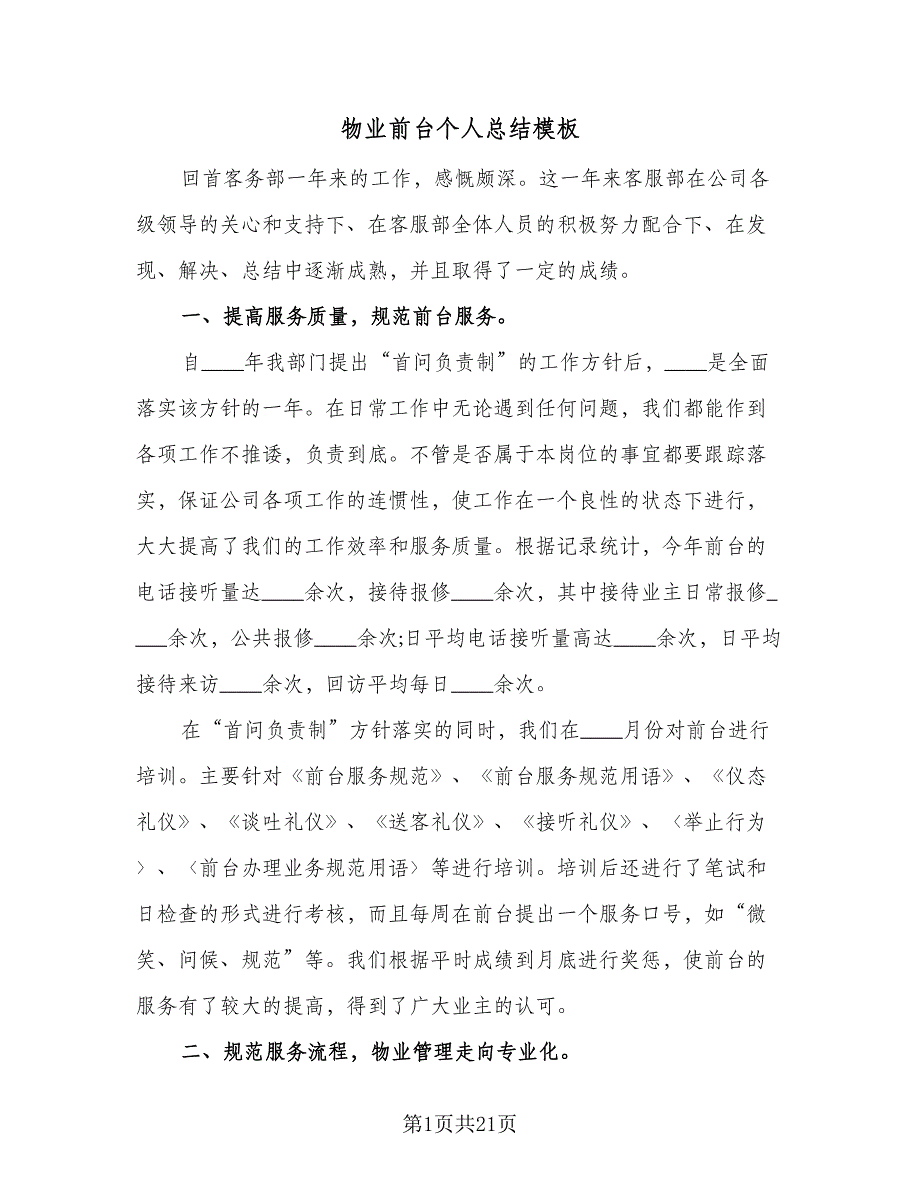 物业前台个人总结模板
回首客务部一年来的工作，感慨颇深。这一年来客服部在公司各
级领导的关心和支持下、在客服部全体人员的积极努力配合下、在发
现、解决、总结中逐渐成熟，并且取得了一定的成绩。
一、提高服务质量，规范前台服务。
自____年我部门提出“首问负责制”的工作方针后，____是全面
落实该方针的一年。在日常工作中无论遇到任何问题，我们都能作到
各项工作不推诿，负责到底。不管是否属于本岗位的事宜都要跟踪落
实，保证公司各项工作的连惯性，使工作在一个良性的状态下进行，
大大提高了我们的工作效率和服务质量。根据记录统计，今年前台的
电话接听量达____余次，接待报修____余次，其中接待业主日常报修_
___余次，公共报修____余次;日平均电话接听量高达____余次，日平均
接待来访____余次，回访平均每日____余次。
在“首问负责制”方针落实的同时，我们在____月份对前台进行
培训。主要针对《前台服务规范》、《前台服务规范用语》、《仪态
礼仪》、《谈吐礼仪》、《送客礼仪》、《接听礼仪》、〈举止行为
〉、〈前台办理业务规范用语〉等进行培训。培训后还进行了笔试和
日检查的形式进行考核，而且每周在前台提出一个服务口号，如“微
笑、问候、规范”等。我们根据平时成绩到月底进行奖惩，使前台的
服务有了较大的提高，得到了广大业主的认可。
二、规范服务流程，物业管理走向专业化。
第1页共21页